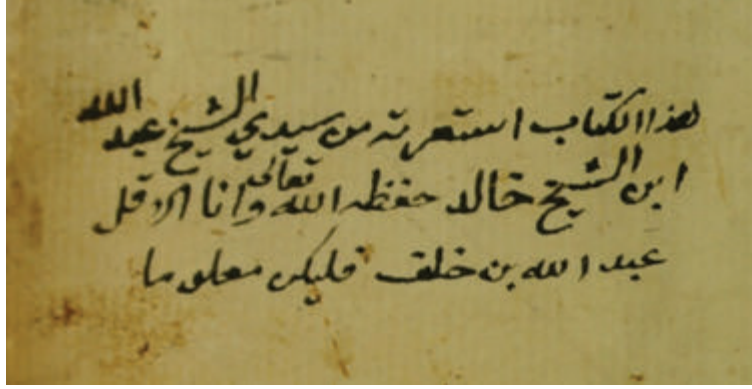 هذا الكتاب استعرته من سيدي الشيخ عبد الله
ابن الشيخ خالد حفظه الله تعالى وانا الاقل
عبد الله بن خلف فليكن معلوما